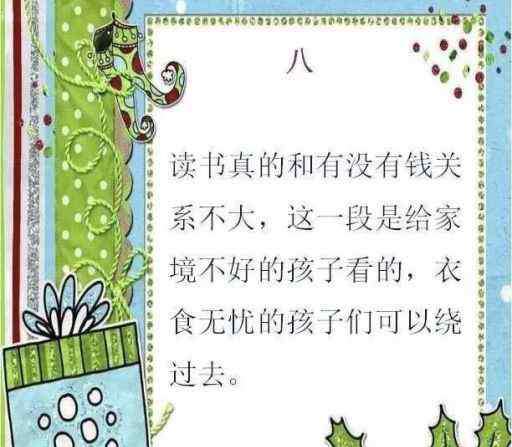 八
读书真的和有没有钱关
系不大，这一段是给家
境不好的孩子看的，衣
食无忧的孩子们可以绕
过去。